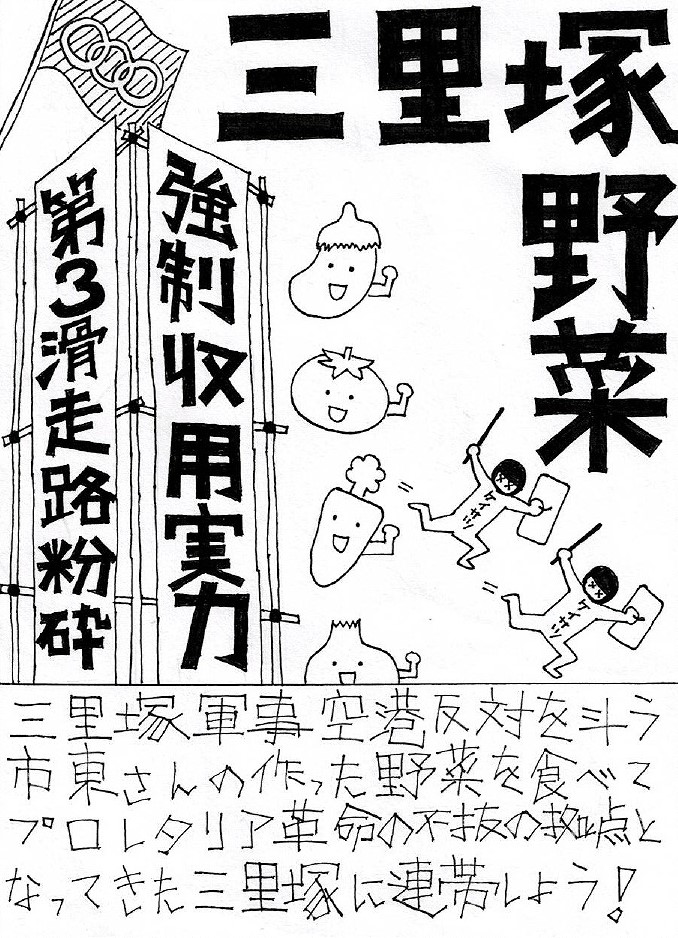 三里塚
野菜
強制収用実力
第3滑走路粉砕
ケイサツ
ケイサツ
三里塚軍事空港反対を斗う
市東さんの作った野菜を食べて
プロレタリア革命の不抜の拠点と
なってきた三里塚に連帯しよう!